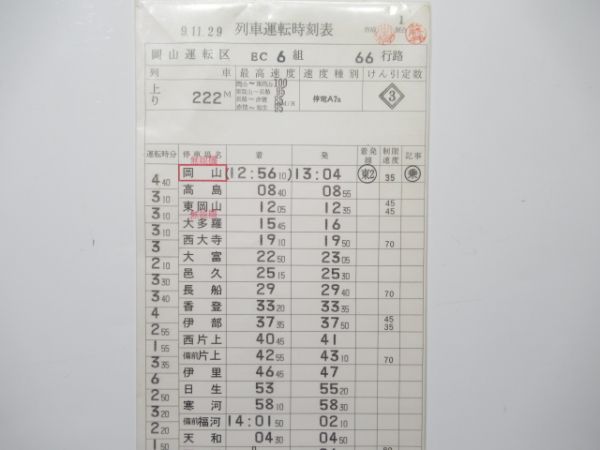 9.11.29 列車運転時刻表 1
岡山運転区 BC 6 組 66 行路
列 車 最高速度 速度種別 けん引定数
上り 222M 停電A72 3
運転時分 停車場名 着 発 着発線 制限速度 記事
岡山 (12:56 10) 13:04 東2 35 乗
4 40
高島 08 40 08 55
3 10
東岡山 12 05 12 35 45 45
3 10
大多羅 15 45 16
3 10
西大寺 19 10 19 50 70
3
大富 22 50 23 05
2 10
邑久 25 15 25 30
3 30
長船 29 29 40 70
3 40
香登 33 20 33 35
4
伊部 37 35 37 50 45 35
2 55
西片上 40 45 41
1 55
備前片上 42 55 43 10 70
3 35
伊里 46 45 47
6
日生 53 55 20
2 50
寒河 58 10 58 30
3 20
備前福河 14:01 50 02 10
2 20
天和 04 30 04 50
1 50